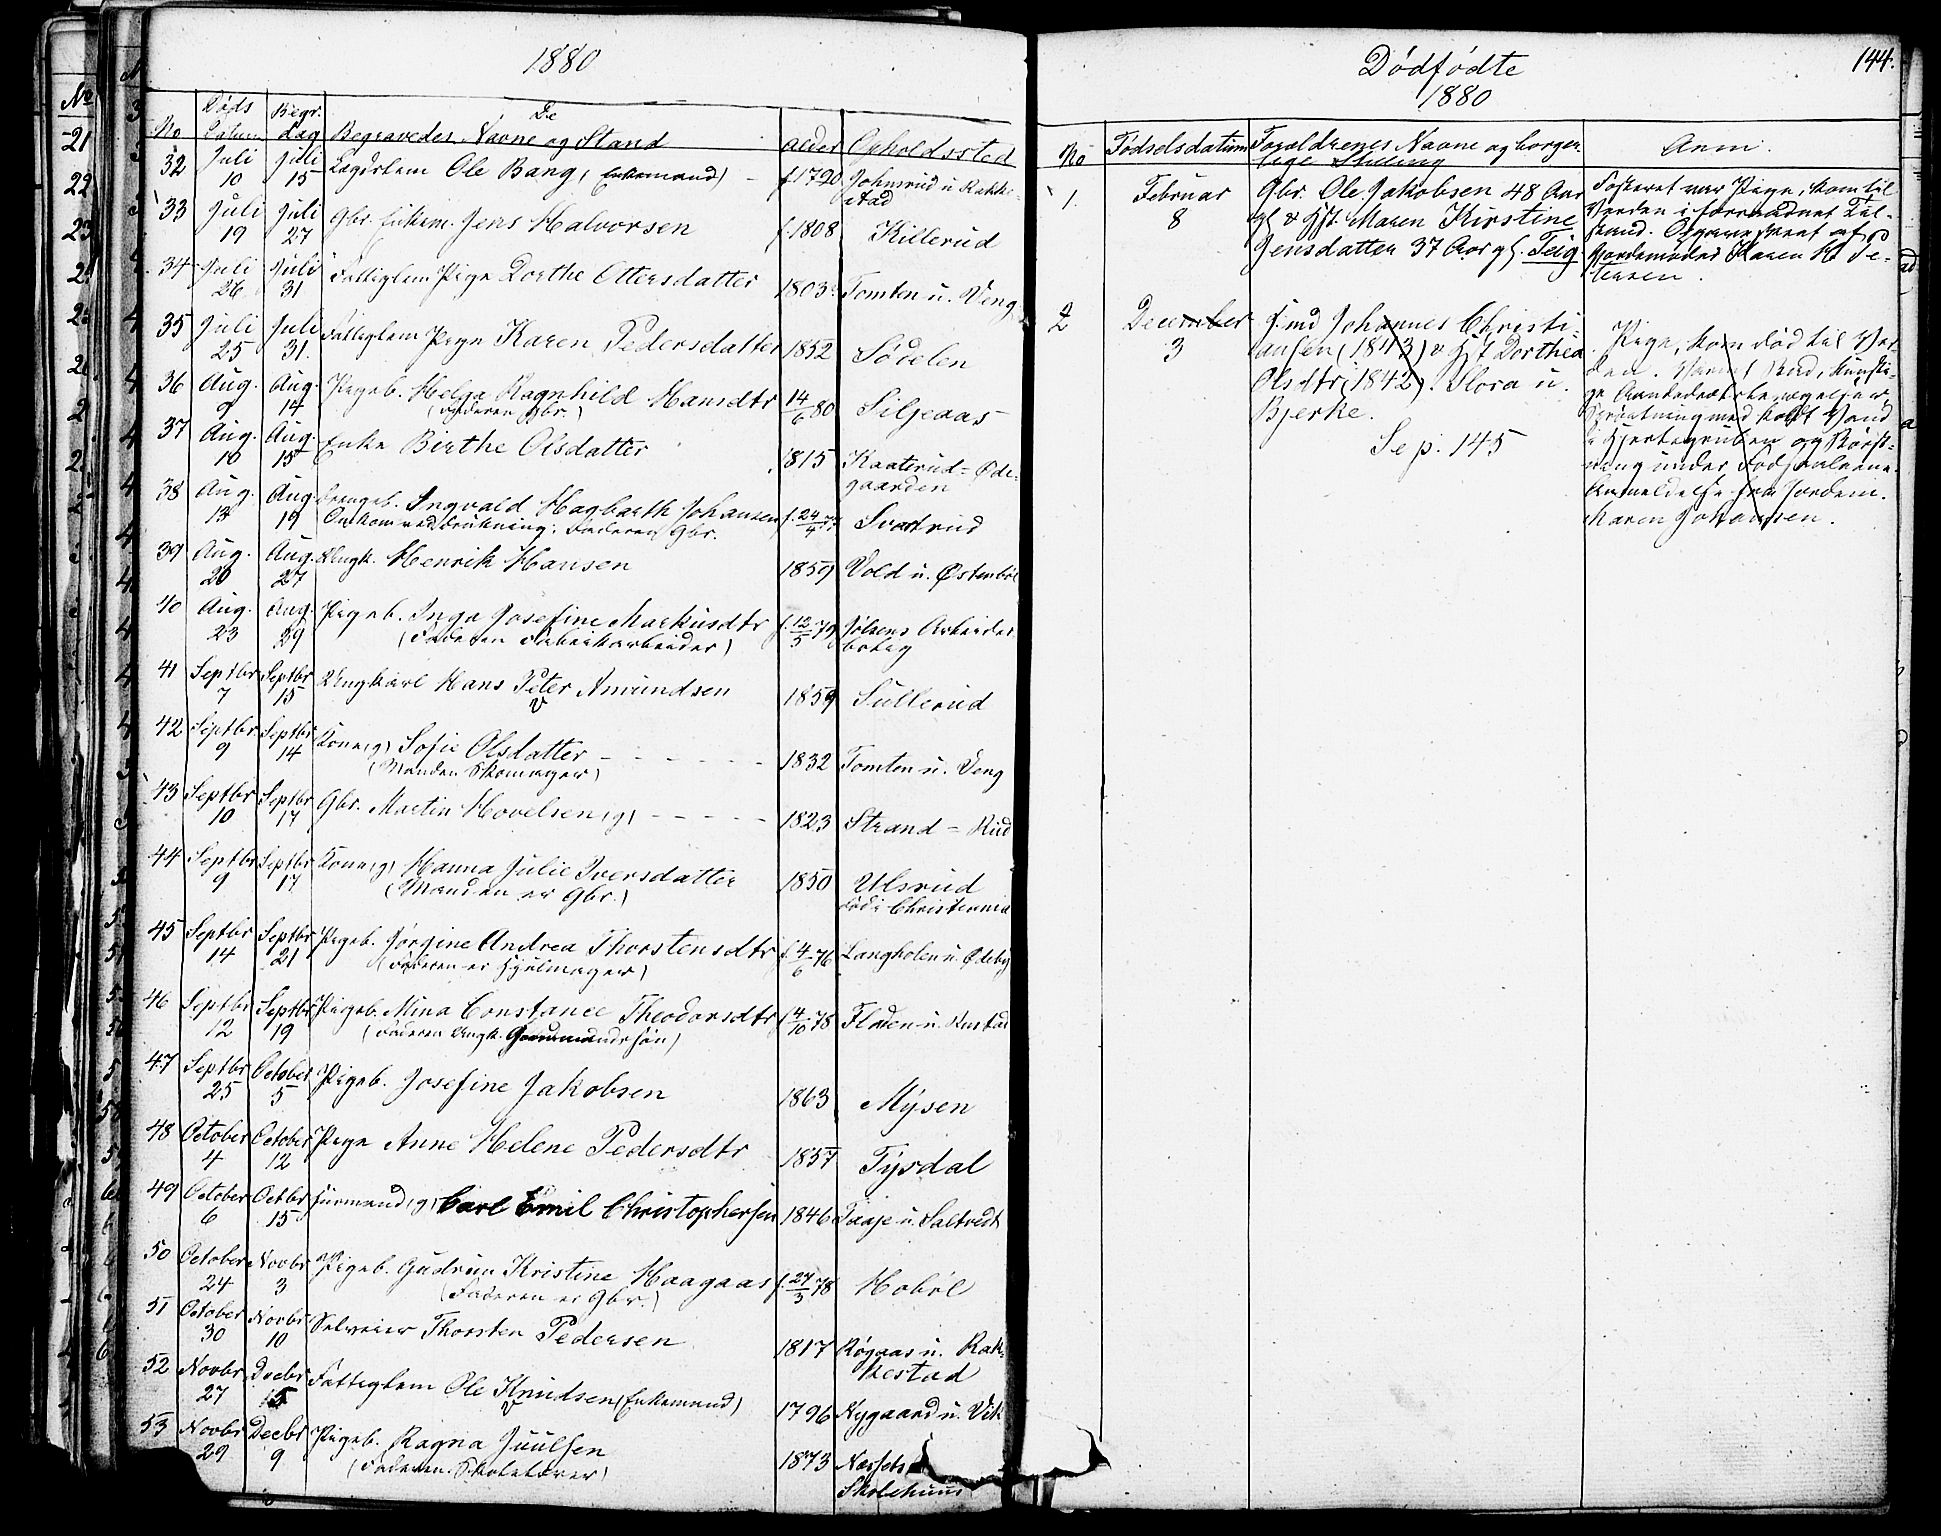 1880
No Døds Datum Begr. dag De Begravedes Navne og Stand alder Opholdssted
32 Juli 10 Juli 15 Lægdslem Ole Bang, (Enkemand) - f. 1790 Johnsrud u. Rakkestad
33 Juli 19 Juli 27 Gbr. Enkem. Jens Halvorsen f. 1808 Killerud
34 Juli 26 Juli 31 Fattiglem Pige Dorthe Ottersdatter 1803 Tomten u. Veng
35 Juli 25 Juli 31. Fattiglem Pige Karen Pedersdatter 1852 Sødelen
36 Aug. 9 Aug. 14 Pigeb. Helga Ragnhild Hansdtr 14/6 80 Siljeaas
(Faderen Gbr.)
37 Aug. 10 Aug. 15 Enke Birthe Olsdatter 1815 Kaaterud-Øde-
gaarden
38 Aug. 13 Aug. 19 Drengeb. Ingvald Hagbarth Johansen f. 24/4 Svartrud
Omkom ved Drukning. Faderen Gbr.
39 Aug. 20 Aug. 27 Ungk. Henrik Hansen 1859 Vold u. Østenbøl
40 Aug. 23 Aug. 29 Pigeb. Inga Josefine Markusdtr f. 12/5 79 Jølsens Arbeider
(Faderen Fabrikarbeider) bolig
41 Septbr 7 Septbr 15 Ungkarl Hans Peter Amundsen 1859 Sullerud
42 Septbr 9 Septbr 14 Kone (g) Sofie Olsdatter - - - - - 1832 Tomten u. Veng
(Manden Skomager)
43 Septbr 10 Septbr 17 Gbr. Martin Hovelsen (g) - - - - - 1823 Strand-Rud
44 Septbr 9 Septbr 17 Kone (g) Hanna Julie Iversdatter 1850 Ulsrud
(Manden er Gbr.) Født Christiania
45 Septbr 14 Septbr 21 Pigeb. Jørgine Andrea Thorstensdtr f. 4/6 76 Langholen u. Ødeby
(Faderen er Hjulmager)
46 Septbr 12 Septbr 19 Pigeb. Mina Constance Theodorsdtr f 4/10 78 Fladen u. Rustad
(Faderen Ungk. Gaardmandssøn)
47 Septbr 25 October 5 Pigeb. Josefine Jakobsen 1863 Mysen
48 October 4 October 12 Pige Anne Helene Pedersdtr 1857 Tysdal
49 October 6 Octbr 15 Furmand (g) Carl Emil Christophersen 1846 Taaje u. Saltvedt
50 October 24 Novbr 3 Pigeb. Gudrun Kristine Haagaas f. 27/3 78 Hobøl
(Faderen er Gbr.)
51 October 30 Novbr 10 Selveier Thorsten Pedersen 1817 Røgaas u. Rak-
kestad
52 Novbr 27 Decbr 15 Fattiglem Ole Knudsen (Enkemand) 1796 Nygaard u. Vik
53 Novbr 29 Decbr 9 Pigeb. Ragna Juulsen 1873 Næssets
(Faderen Skolelærer) Skolehuus
144.
Dødfødte
1880
No Fødselsdatum Forældrenes Navne og borger- Anm.
lige Stilling
1. Februar 8 Gbr. Ole Jakobsen 48 Aar
gl & Hst. Maren Kirstine
Jensdatter 37 Aar gl. Teig
Fosteret var Pige, kom til
Verden i forraadnet Til-
stand. Opgave skeet af
Jordemoder Karen M Pe-
tersen.
2 December 3 Jmd Johannes Christi-
ansen (1843) & Hst Dorthea
Olsdtr (1842). Slora u.
Bjerke.
Se p. 145
Pige, kom død til Ver-
den. Varmt Bad, kunsti-
ge Aandedrætsbevægelser,
Sprøitning med koldt Vand
i Hjertegruben og Børst-
ning under Fodsaalerne.
Anmeldelse fra Jordem.
Karen Johansen.